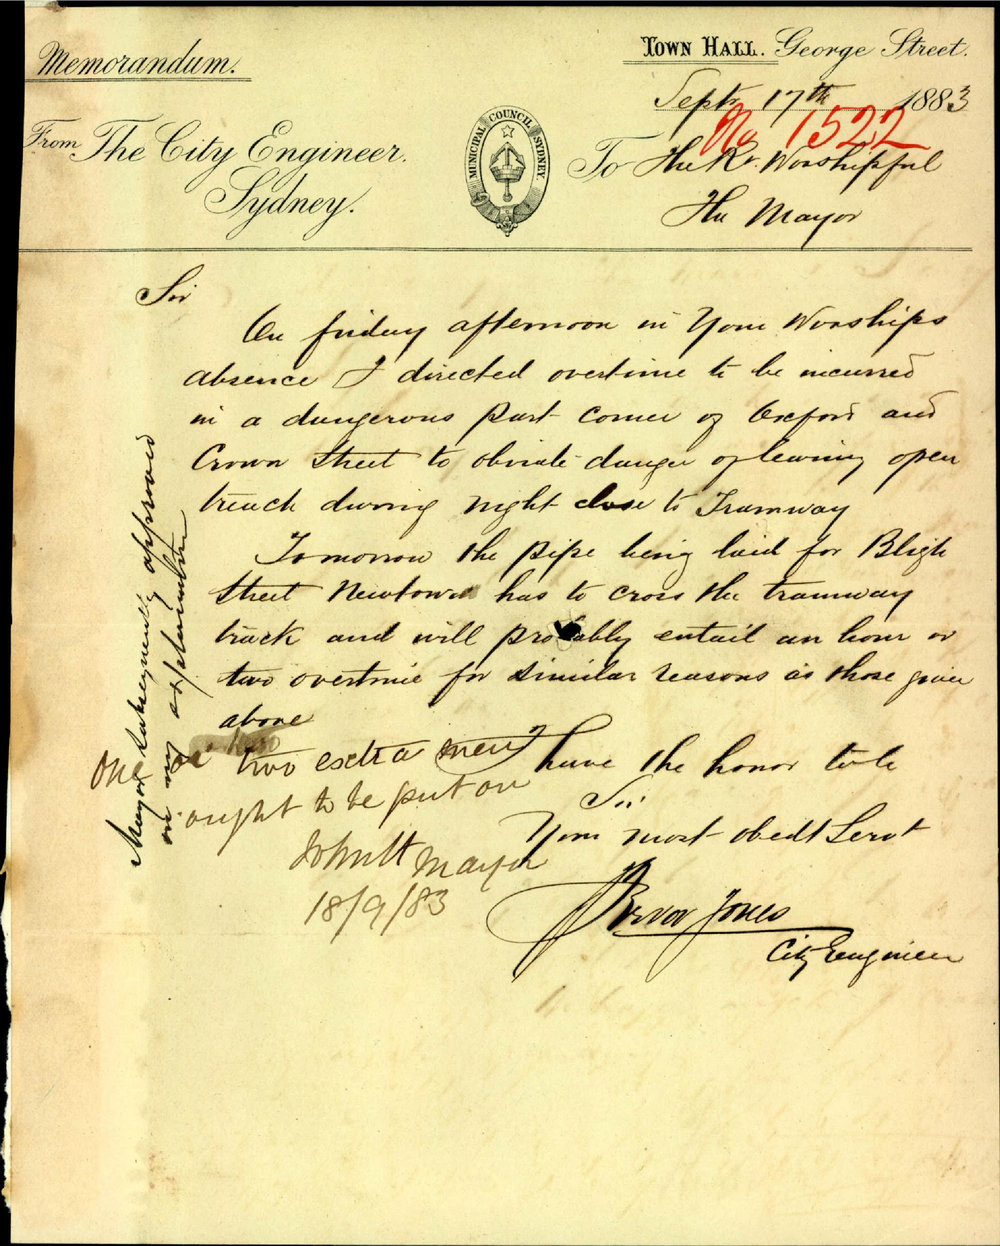 Memorandum.
TOWN HALL. George Street.
Septr 17th 1883
No 1522
From The City Engineer.
Sydney.
MUNICIPAL COUNCIL SYDNEY
To The Rt. Worshipful
The Mayor
Sir
On friday afternoon in Your Worships
absence I directed overtime to be incurred
in a dangerous part corner of Oxford and
Crown Street to obviate danger of leaving open
trench during night close to Tramway
Tomorrow the pipe being laid for Bligh
Street Newtown has to cross the tramway
track and will probably entail an hour or
two overtime for similar reasons as those given
above
I have the honor to be
Sir
Your most obedt Servt
Trevor Jones
City Engineer
One or two extra men
ought to be put on
Mayor
18/9/83
Mayor subsequently approved
on my explanation